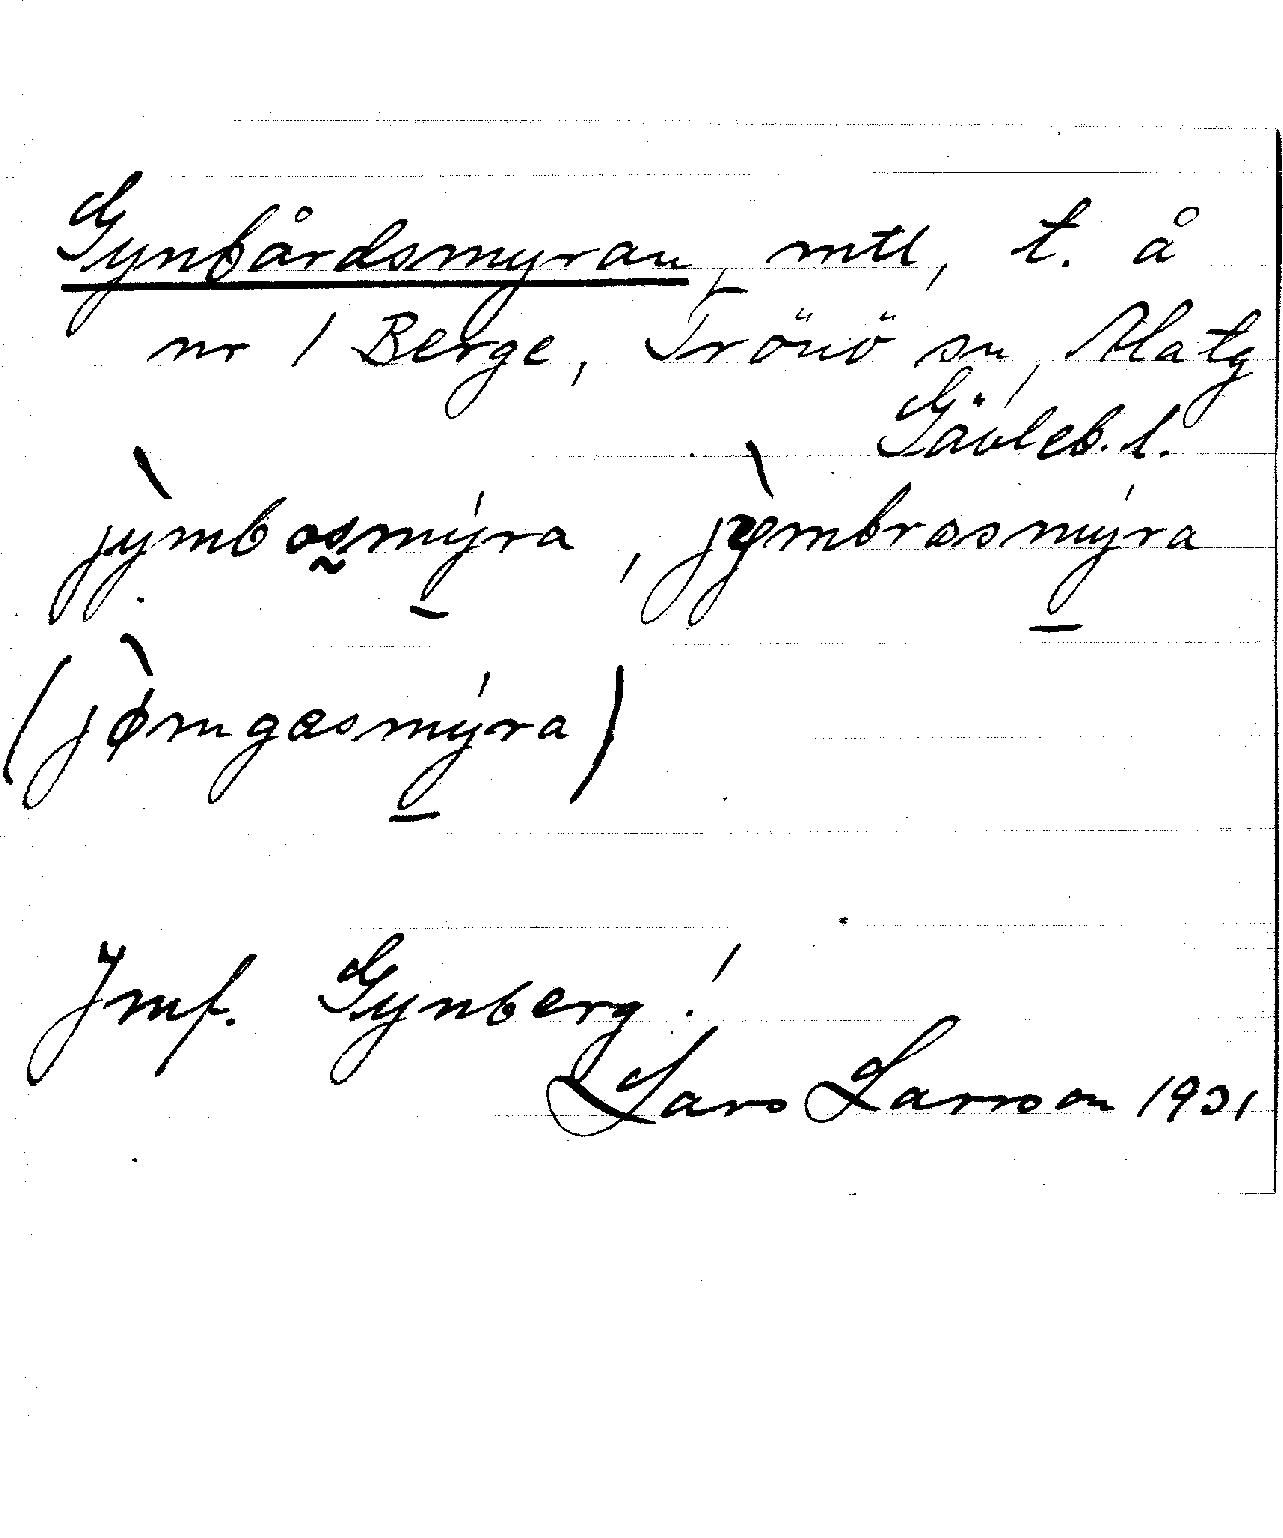 Gynbårdsmyran, mtl, t. å
nr 1 Berge, Trönö sn, Alatg
Gävleb. l.
jỳ̖mbosmýra, jỳmbrasmýra
(jø̀mgasmýra)
Jmf. Gynberg!
Lars Larsson 1931